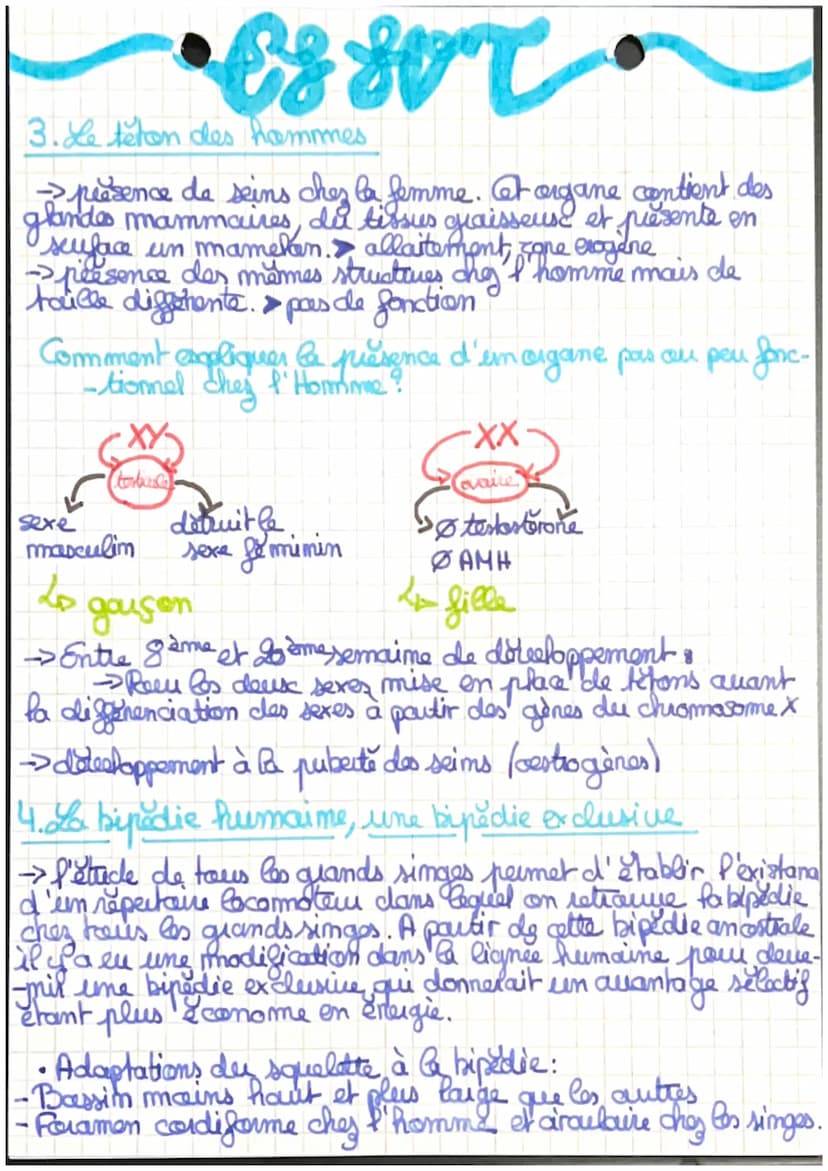 ES SVT
3. Le téton des hommes
→ présence de seins chez la femme. Cet organe contient des
glandes mammaires, du tissus graisseuse et présente en
surface un mamelon. ➤ allaitement, zone erogène
→ présence des mêmes structures chez l'homme mais de
taille différente. ➤ pas de fonction
Comment expliquer la présence d'un organe pas ou peu fonc-
-tionnel chez l'Homme?
XY XX
testicule ovaire
sexe masculin détruit le sexe féminin
Ø testostérone
Ø AMH
↳ garçon ↳ fille
→ Entre 8ème et 20ème semaine de développement :
→ Pour les deux sexes, mise en place de tétons avant
la différenciation des sexes à partir des gènes du chromosome X
→ développement à la puberté des seins (oestrogènes)
4. La bipédie humaine, une bipédie exclusive
→ l'étude de tous les grands singes permet d'établir l'existance
d'un répertoire locomoteur dans lequel on retrouve la bipédie
chez tous les grands singes. A partir de cette bipédie ancestrale
il y a eu une modification dans la lignée humaine pour deve-
-nir une bipédie exclusive, qui donnerait un avantage sélectif
étant plus économe en énergie.
• Adaptations du squelette à la bipédie:
- Bassin moins haut et plus large que les autres
- Foramen cordiforme chez l'homme et circulaire chez les singes.